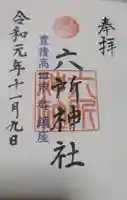 奉拝
豊後高田市鎮座
六所神社
令和元年十一月九日